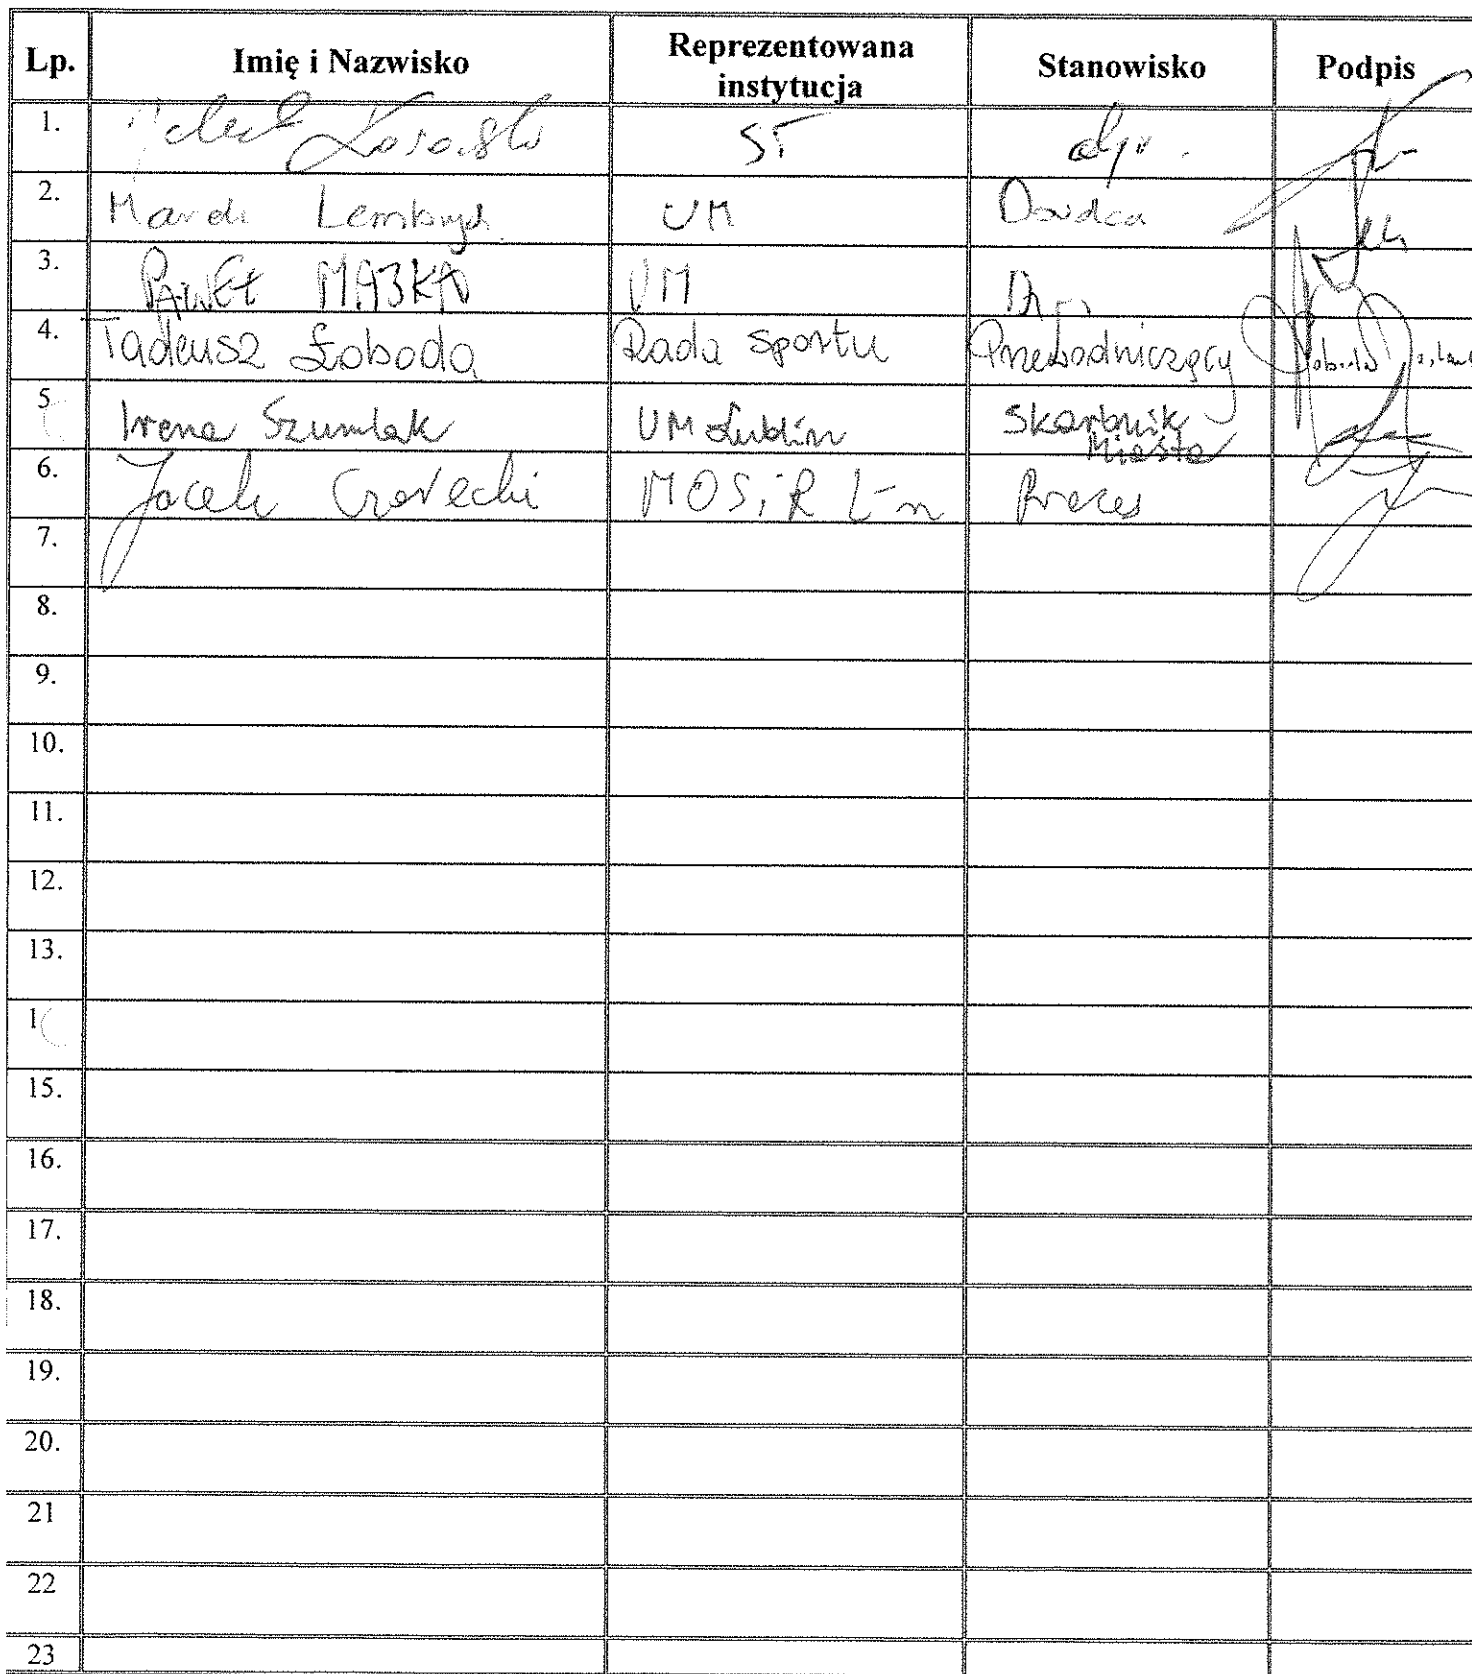 Lp. Imię i Nazwisko Reprezentowana instytucja Stanowisko Podpis
1. ST
2. UM Doradca
3. PAWEŁ UM
4. Tadeusz Łoboda Rada Sportu Przewodniczący
5 Irena Szumlak UM Lublin Skarbnik Miasta
6. Jacek Czarecki MOSiR L-n Prezes
7.
8.
9.
10.
11.
12.
13.
1
15.
16.
17.
18.
19.
20.
21
22
23